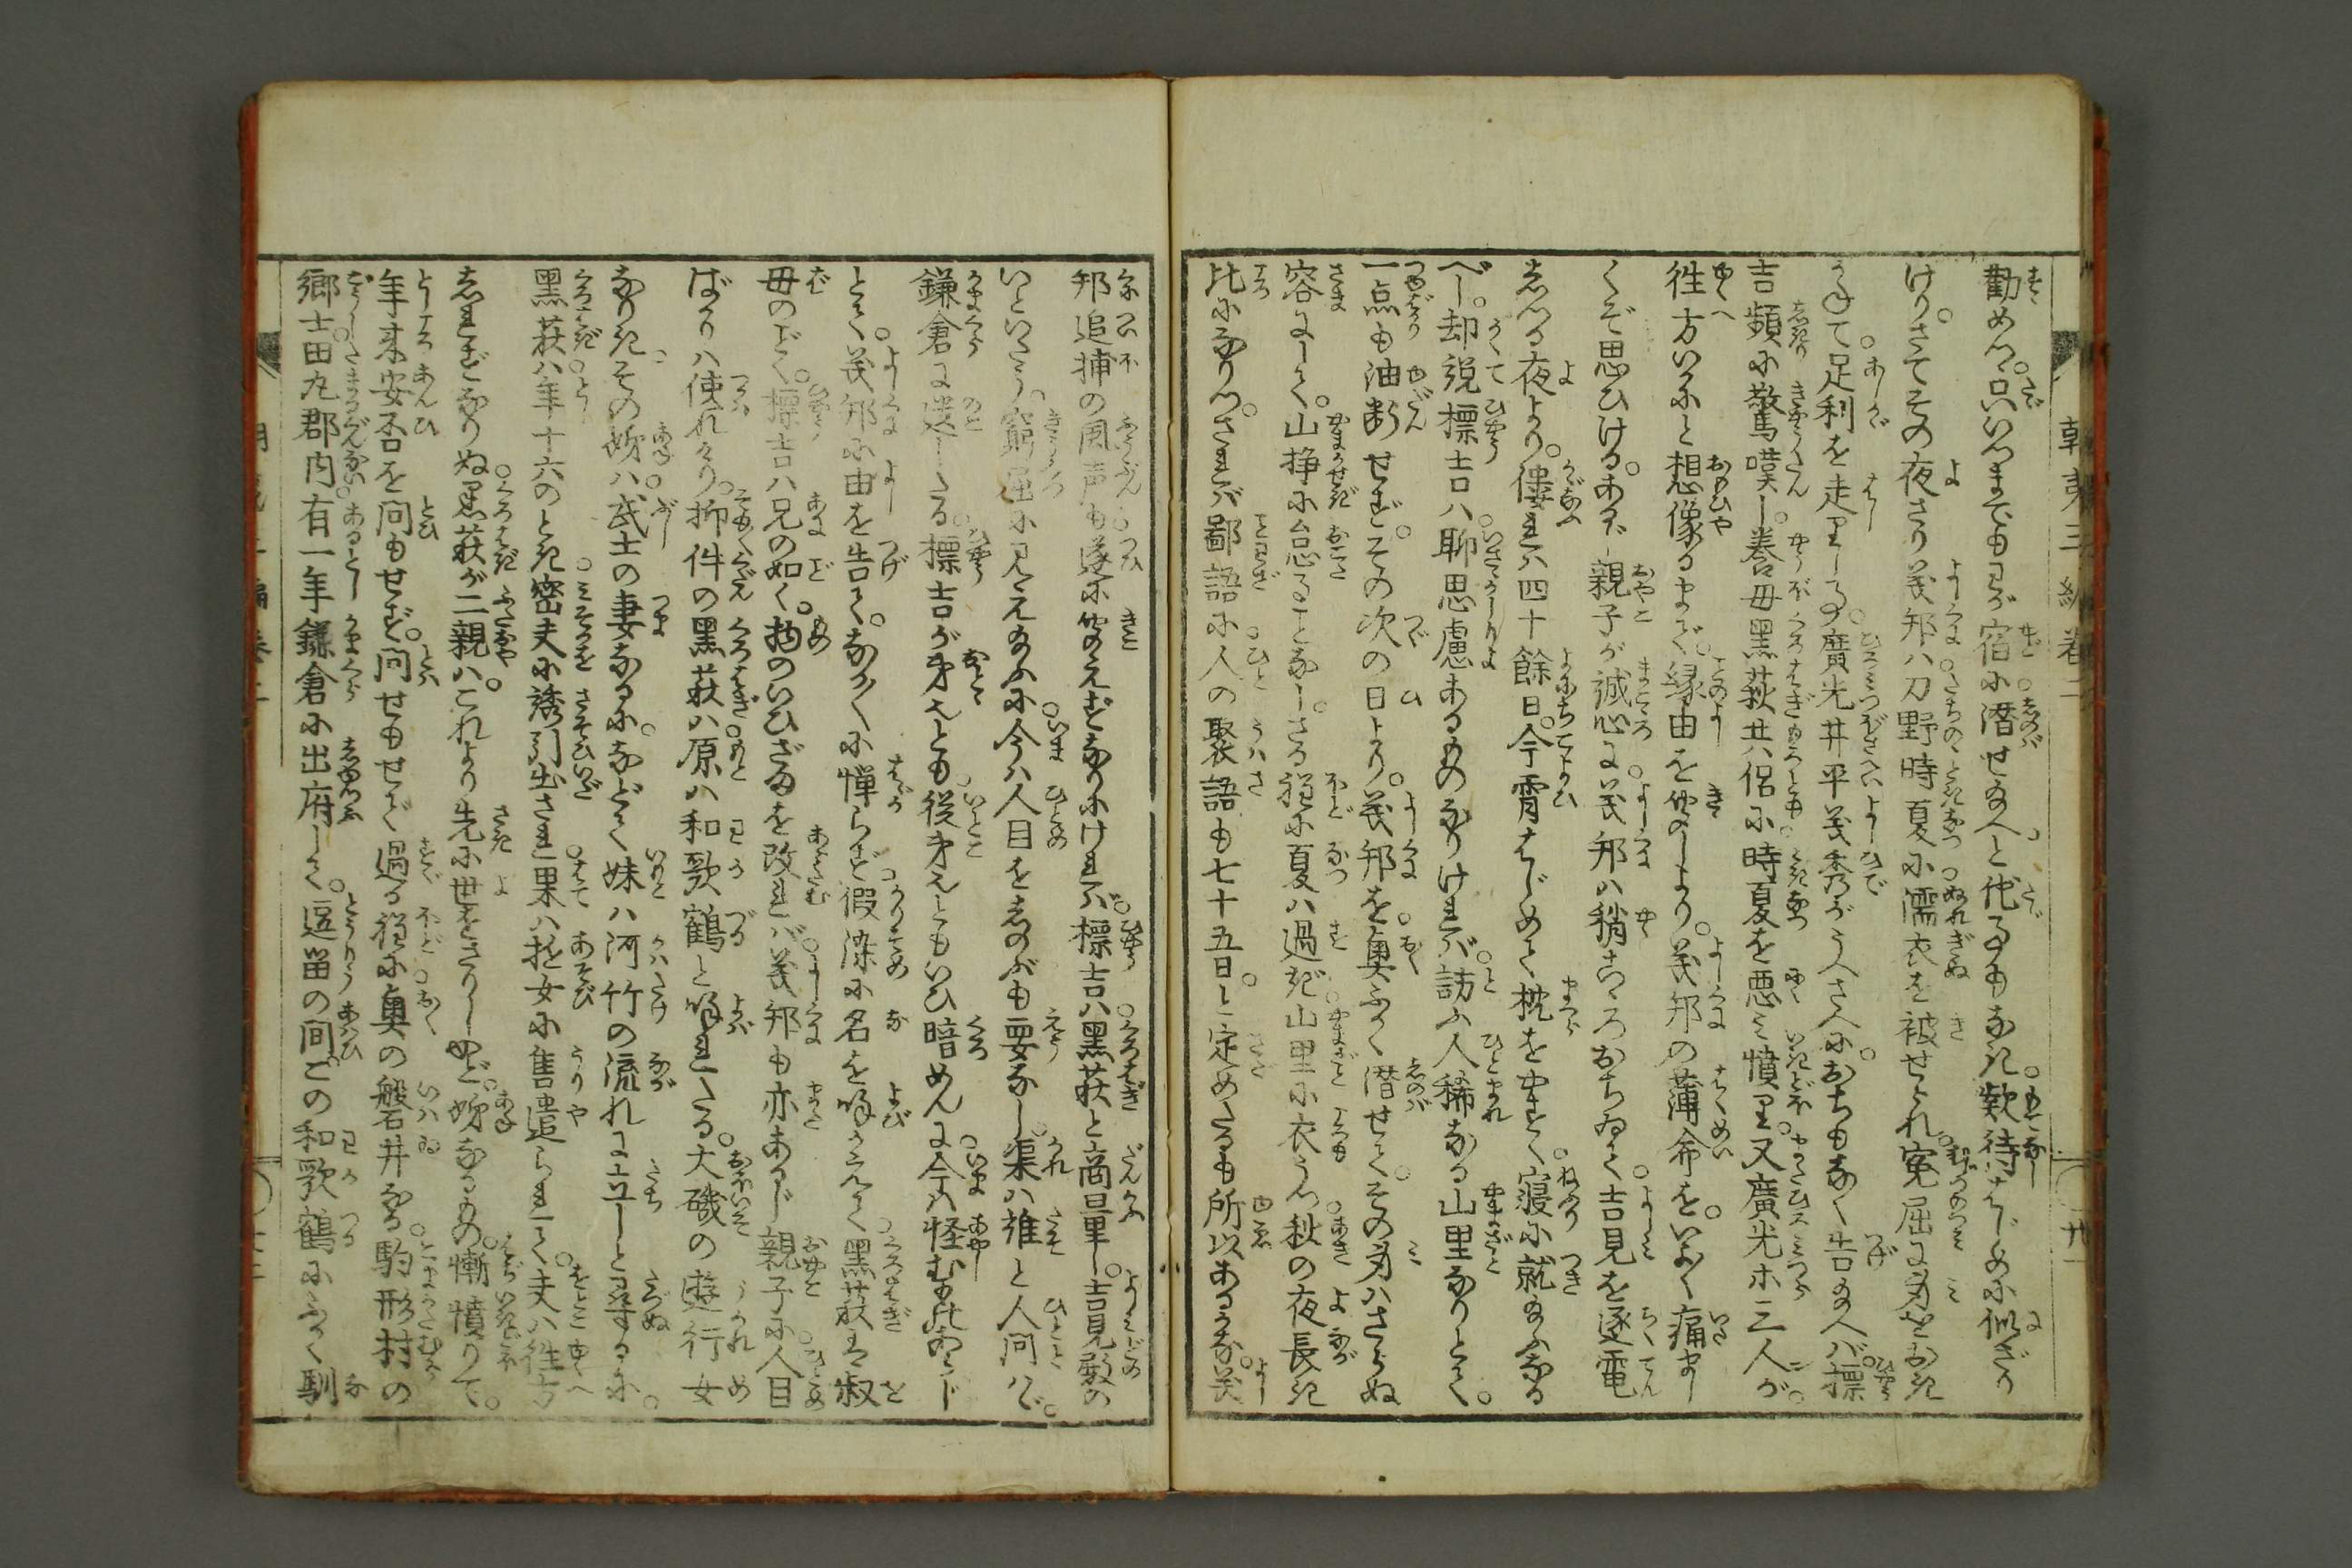 勸めつ。只いつまでもわが宿に潜せ給へと他事もなき欵待はじめに似ざり
けり。さてその夜さり義邦ハ刀野時夏に濡衣を被せられ。寃屈に身をおき
かねて。足利を走りし事。廣光井平義秀がうへさへに。おちもなく告給へバ標
吉頻に驚嘆し。養母黒萩共侶に時夏を悪み憤り。又廣光ホ三人が
徃方いかにと想像るまで。縁由を聞しより。義邦の薄命を。いよゝ痛まし
くぞ思ひける。あるじ親子が誠心に義邦ハ稍こゝろおちゐて。吉見を逐電
しつる夜より。僂れバ四十餘日。今宵はじめて枕をやすく。寝に就給ふなる
べし。却説標吉ハ聊思慮あるものなりけれバ。訪ふ人稀なる山里なりとて。
一点も油断せず。その次の日より。義邦を。奥ふかく潜せて。その身ハさらぬ
容にして。山挣に怠ることなし。さる程に夏ハ過ぎ山里に衣うつ。秋の夜長き
比になりつ。されバ鄙語に人の聚語も七十五日。と定めたるも所以あるかな。義
邦追捕の風声も遂に聞えずなりにけれバ。標吉ハ黒萩と商量し。吉見殿の
いといたう。窮屈に見え給ふに今ハ人目をしのぶも要なし。渠ハ誰と人問ハゞ。
鎌倉に遺したる。標吉が弟也とも従弟也ともいひ暗めんに今ハ怪むもの
とて。義邦に由を告て。なか〳〵に憚らず假染に名を喚かえて。黒萩を叔
母のごとく。標吉ハ兄の如く。物のいひざまを改れバ。義邦も亦あるじ親子に人目
ばかりハ使れけり。抑件の黒萩ハ。原ハ和歌鶴と喚れたる。大磯の遊行女
なりき。その姉ハ。武士の妻なるに。などて妹ハ河竹の流れに立しと尋るに。
黒萩ハ年十六のとき密夫に誘引出され果ハ妓女に售遣られて。夫ハ徃方
しれずなりぬ黒萩が二親ハ。これより先に世をさりしかど。姉なるもの。慚憤りて。
年来安否を問もせず。問せもせで過る程に奥の磐井なる。駒形村の
郷士田丸郡内有一年鎌倉に出府して。逗畄の間この和歌鶴にふかく馴